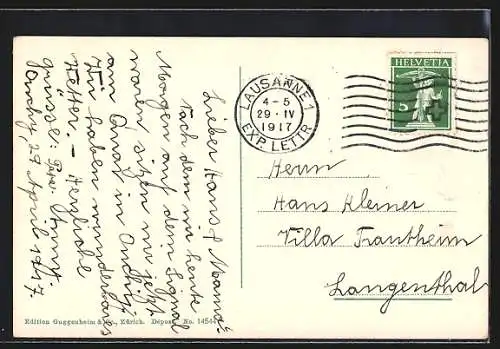 Lieber Hans & Mama:
Nach dem wir heute
Morgen auf dem Signal
waren sitzen wir jetzt
am Quai in Ouchy.
Wir haben wunderbares
Wetter. – Herzliche
Grüsse: Papa
Ouchy, 29 April 1917
LAUSANNE 1
4-5
29·IV
1917
EXP. LETTR.
HELVETIA
5
Herrn
Hans Kleiner
Villa Trautheim
Langenthal
Edition Guggenheim & Co., Zürich. Déposé No. 1454